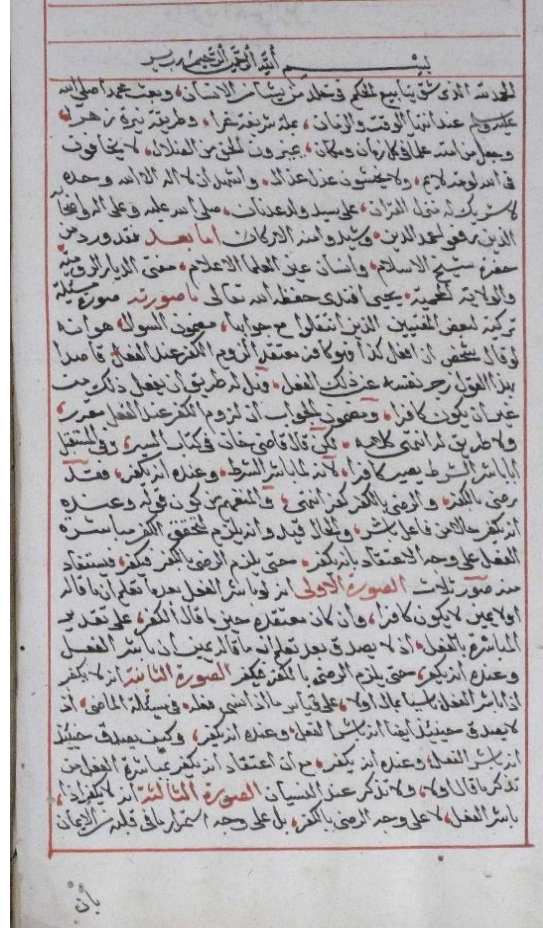 بسم الله الرحمن الرحيم
الحمد لله الذي شق ينابيع الحكم في خلد من يشاء من الانسان، وبعث محمدا صلى الله
عليه وسلم عند انتها الوقت والزمان، بملة شريفة غرا، وطريقة نيرة زهرا،
وجعل من امته علما في كل زمان ومكان، يميزون الحق من الضلال، لا يخافون
في الله لومة لائم، ولا يخشون عذل عذال، واشهد ان لا اله الا الله وحده
لا شريك له منزل القران، على سيد ولد عدنان، صلى الله عليه وعلى اله واصحابه
الذين رفعوا لحمد الدين، وشيدوا منه الاركان اما بعد فقد ورد من
حضرة شيخ الاسلام، وانسان عين العلما الاعلام، مفتي الديار الرومية
والولاية المحمية، يحيى افندي حفظه الله تعالى ما صورته صورة مسئلة
تركية لبعض المفتيين الذين انتقلوا مع جوابها، مضمون السوال، هو انه
لو قال شخص ان افعل كذا فهو كافر معتقدا لزوم الكفر عند الفعل قاصدا
بهذا القول زجر نفسه عن ذلك الفعل، فهل له طريق ان يفعل ذلك من
غير ان يكون كافرا، ومضمون الجواب ان لزوم الكفر عند الفعل مقرر،
ولا طريق له انتهى كلامه، لكن قال قاضي خان في كتاب السير، وفي المستقبل
اذا باشر الشرط يصير كافرا، لانه لما باشر الشرط، وعنده انه يكفر، فقد
رضي بالكفر، والرضى بالكفر كفر انتهى، والمفهم من كون قوله وعنده
انه يكفر حالا من فاعل باشر، والحال قيد وانه يلزم لتحقق الكفر مباشرة
الفعل على وجه الاعتقاد بانه يكفر، حتى يلزم الرضى بالكفر فيكفر، فيستفاد
منه صور ثلاث الصورة الاولى انه لو باشر الفعل بعد ما تعلم ان ما قاله
اولا يمين لا يكون كافرا، وان كان معتقده حين ما قال الكفر، على تقدير
المباشرة بالفعل، اذ لا يصدق بعد تعلم ان ما قاله يمين ان باشر الفعل
وعنده انه يكفر، حتى يلزم الرضى بالكفر فيكفر الصورة الثانية انه لا يكفر
اذا باشر الفعل ناسيا ما قال اولا، على قياس ما اذا نسي فعله، في مسئلة الماضي، اذ
لا يصدق حينئذ ايضا انه باشر الفعل، وعنده انه يكفر، وكيف يصدق حينئذ
انه باشر الفعل، وعنده انه يكفر، مع ان اعتقاد انه يكفر بمباشرة الفعل من
تذكر ما قال اولا، ولا تذكر عند النسيان الصورة الثالثة انه لا يكفر اذا
باشر الفعل، لا على وجه الرضى بالكفر، بل على وجه استمرار ما في قلبه من الايمان
بان